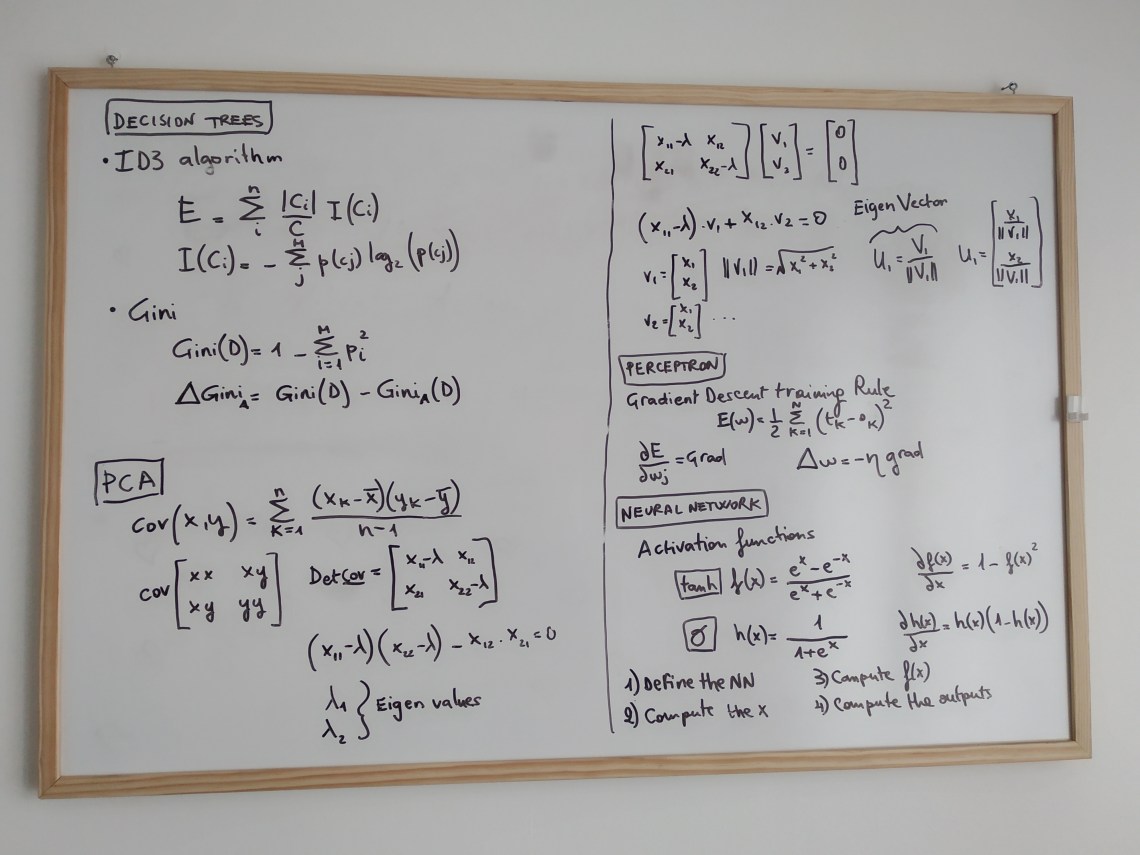 DECISION TREES
• ID3 algorithm
E = Σ_i^n |Ci|/C I(Ci)
I(Ci) = - Σ_j^M p(cj) log₂ (p(cj))
• Gini
Gini(D) = 1 - Σ_{i=1}^M Pi²
ΔGini_A = Gini(D) - Gini_A(D)
PCA
Cov(x,y) = Σ_{K=1}^n (x_K - x̄)(y_K - ȳ) / n-1
cov [xx xy
xy yy]
Det Cov = [x₁₁-λ x₁₂
x₂₁ x₂₂-λ]
(x₁₁-λ)(x₂₂-λ) - x₁₂ · x₂₁ = 0
λ₁
λ₂ } Eigen values
[x₁₁-λ x₁₂
x₂₁ x₂₂-λ] [v₁
v₂] = [0
0]
(x₁₁-λ)·v₁ + x₁₂·v₂ = 0
Eigen Vector
v₁ = [x₁
x₂] ||V₁|| = √x₁² + x₂²
U₁ = V₁/||V₁||
U₁ = [x₁/||V₁||
x₂/||V₁||]
v₂ = [x₁
x₂] ...
PERCEPTRON
Gradient Descent training Rule
E(w) = 1/2 Σ_{K=1}^N (t_K - o_K)²
∂E/∂wj = Grad
Δw = -η grad
NEURAL NETWORK
Activation functions
tanh f(x) = e^x - e^-x / e^x + e^-x
∂f(x)/∂x = 1 - f(x)²
σ h(x) = 1 / 1+e^x
∂h(x)/∂x = h(x)(1-h(x))
1) Define the NN
2) Compute the x
3) Compute f(x)
4) Compute the outputs